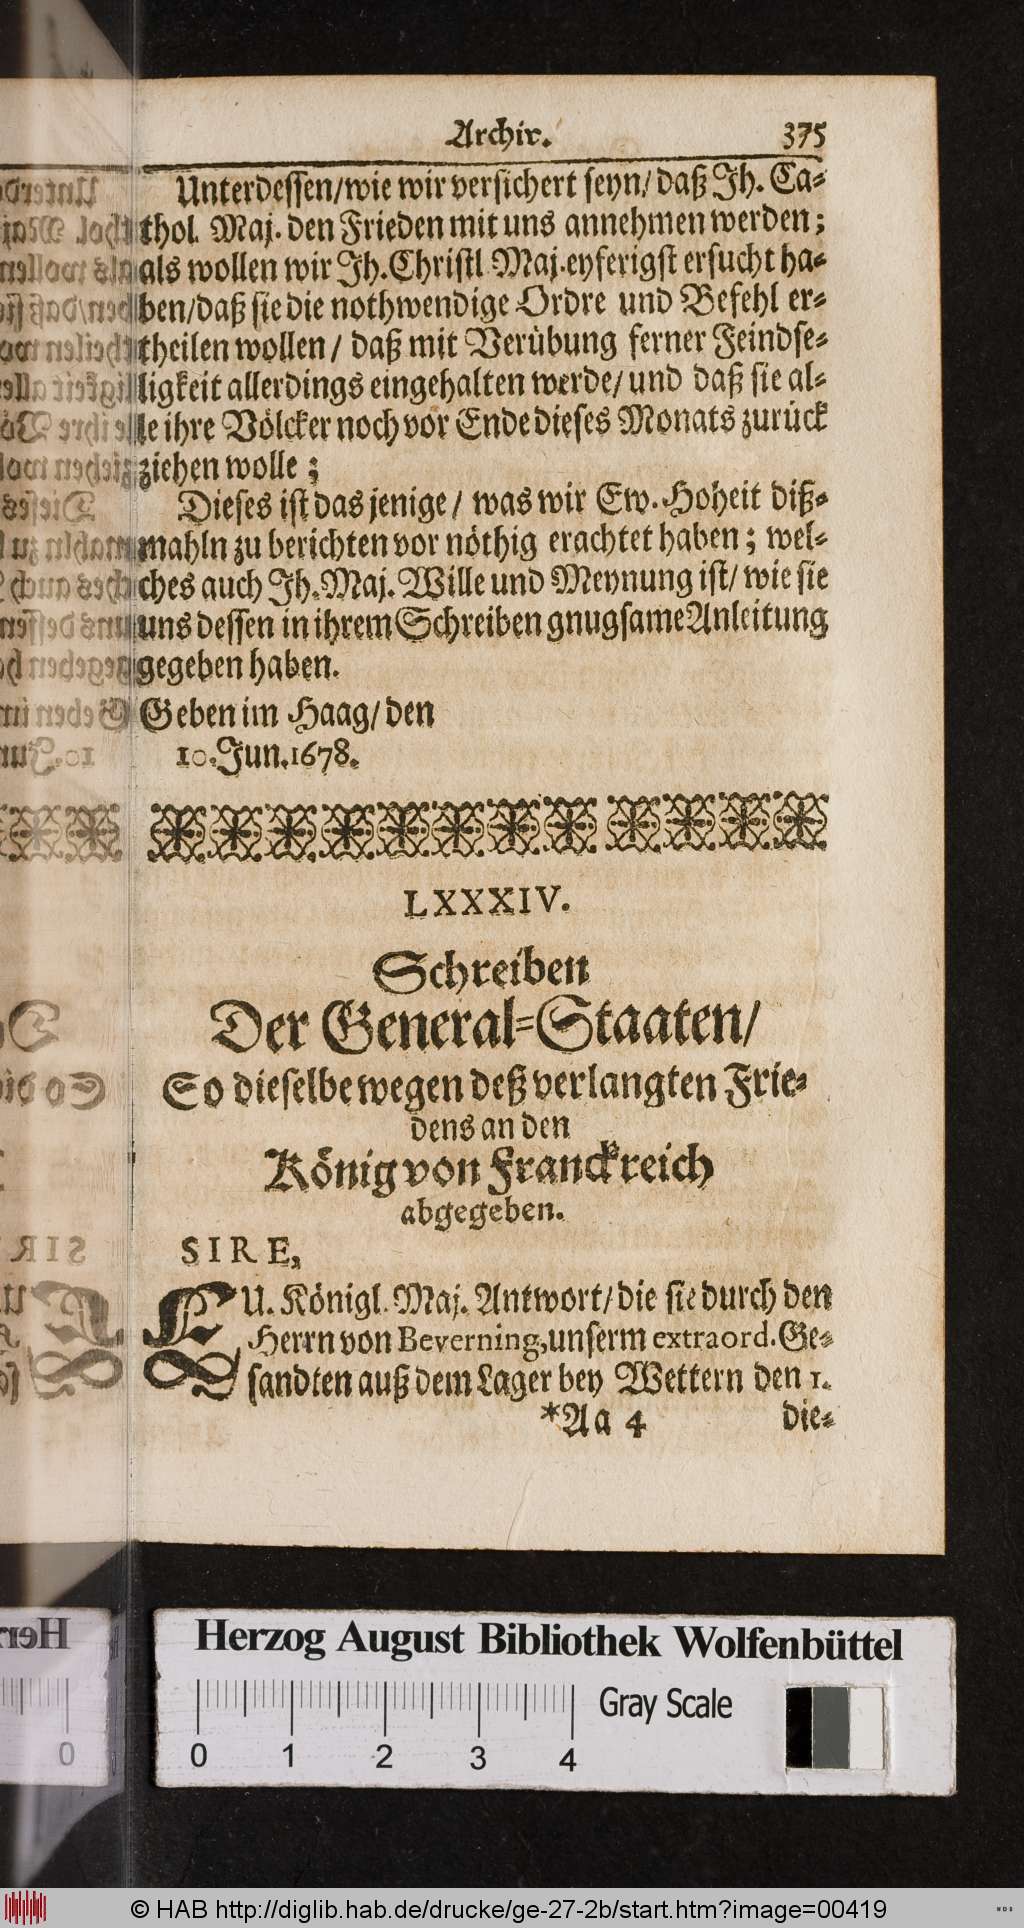 Archiv. 375
Unterdessen/wie wir versichert seyn/ daß Jh. Ca-
thol. Maj. den Frieden mit uns annehmen werden;
als wollen wir Jh. Christl. Maj. eyferigst ersucht ha-
ben/daß sie die nothwendige Ordre und Befehl er-
theilen wollen/ daß mit Verübung ferner Feindse-
ligkeit allerdings eingehalten werde/ und daß sie al-
le ihre Völcker noch vor Ende dieses Monats zurück
ziehen wolle;
Dieses ist das jenige/ was wir Ew. Hoheit diß-
mahln zu berichten vor nöthig erachtet haben; wel-
ches auch Jh. Maj. Wille und Meynung ist/ wie sie
uns dessen in ihrem Schreiben gnugsame Anleitung
gegeben haben.
Geben im Haag/ den
10. Jun. 1678.
LXXXIV.
Schreiben
Der General-Staaten/
So dieselbe wegen deß verlangten Frie-
dens an den
König von Franckreich
abgegeben.
SIRE,
EU. Königl. Maj. Antwort/ die sie durch den
Herrn von Beverning, unserm extraord. Ge-
sandten auß dem Lager bey Wettern den 1.
*Aa 4 die-
Herzog August Bibliothek Wolfenbüttel
Gray Scale
0 1 2 3 4
© HAB http://diglib.hab.de/drucke/ge-27-2b/start.htm?image=00419